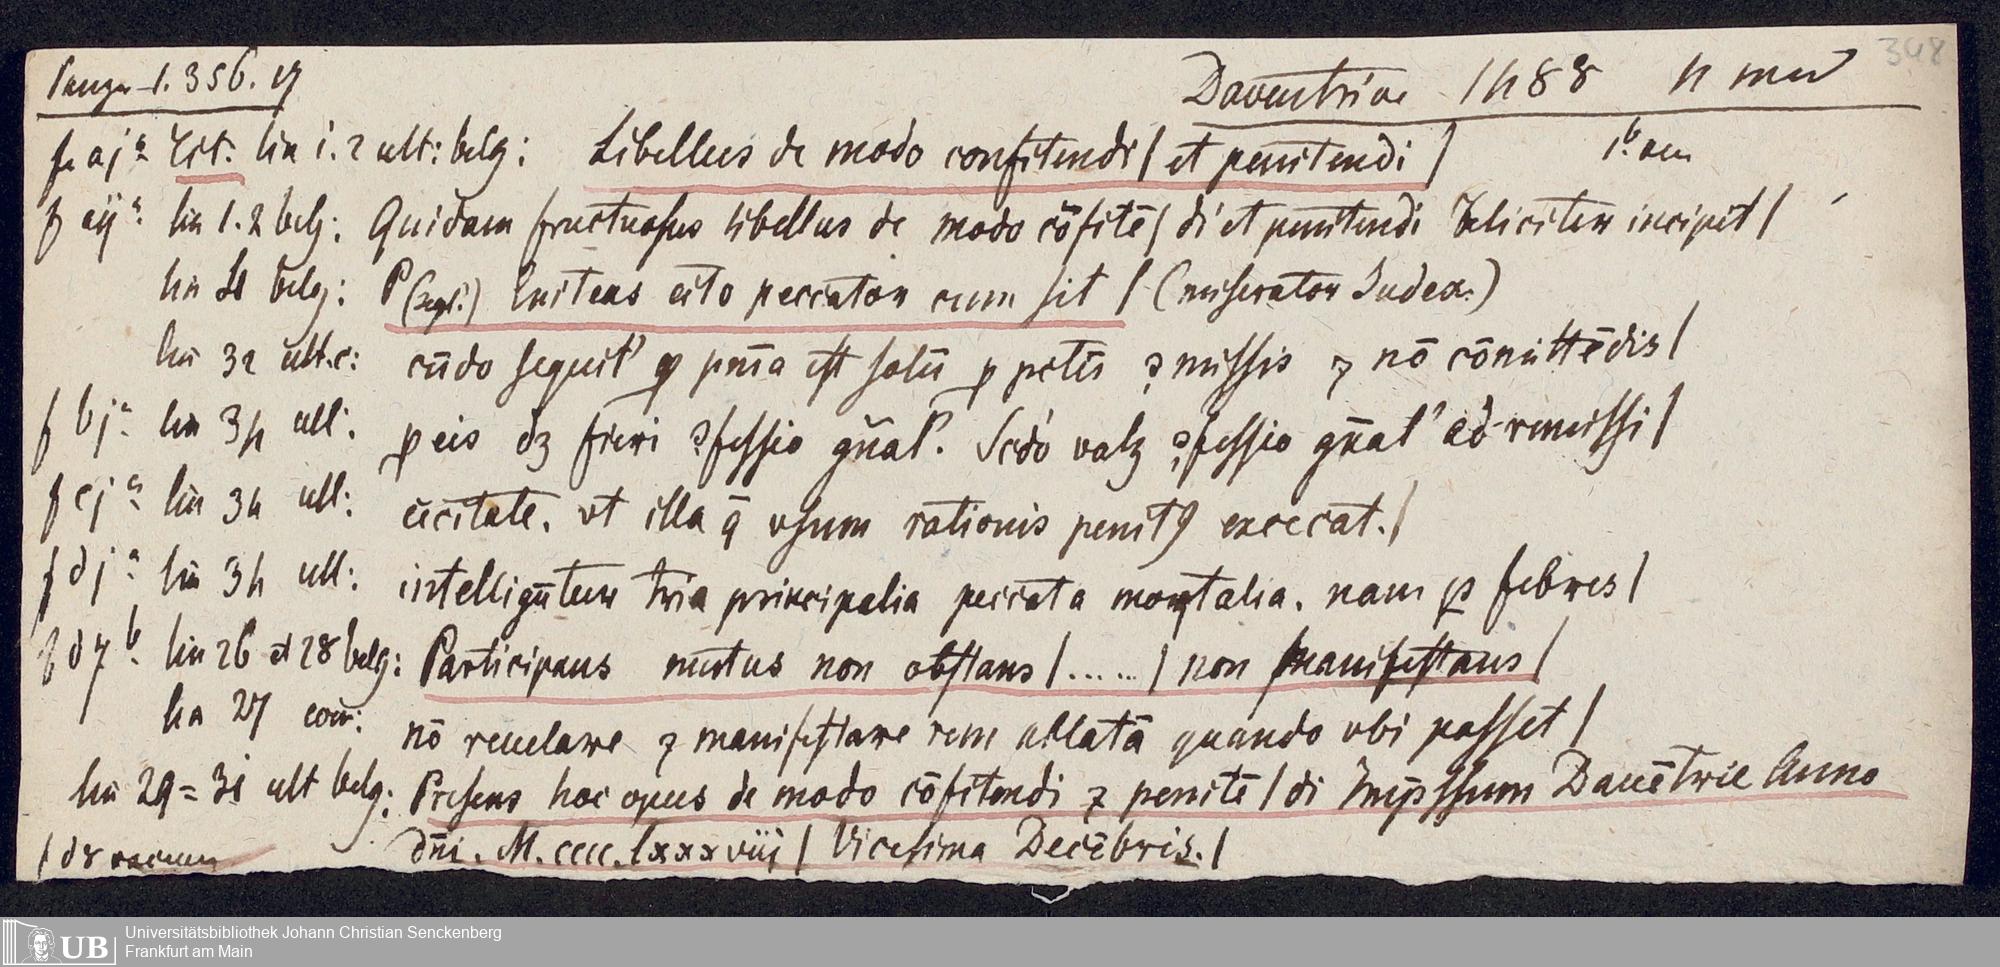 Panzer I. 356. 17 Daventriae 1488 4 min 348
f aj a Tit. lin 1. 2 ult: belg: Libellus de modo confitendi | et penitendi | 1 b vac
f aij a. lin 1. 2 belg: Quidam fructuosus libellus de modo cōfitē | di et penitendi feliciter incipit |
lin belg: P (repr.) Enitens cito peccator cum sit | (miserator Judex.)
lin 32 ult. c: cūdo sequit' ꝙ pnīa est solū ꝑ pctīs ꝯmissis ⁊ nō cōmittēdis |
f bj a. lin 34 ult: ꝑ eis dꝫ fieri ꝯfessio gn̄al'. Scdo valꝫ ꝯfessio gn̄al' ad remissi |
f cj a. lin 34 ult: cecitate. vt illa q̄ vsum rationis penitꝰ excecat. |
f dj a. lin 34 ult: intelligūtur tria principalia peccata mortalia. nam ꝑ febres |
f d7 b. lin 26 et 28 belg: Participans mutus non obstans | ...... | non manifestans |
lin 27 com: nō reuelare ⁊ manifestare rem ablatā quando vbi posset |
lin 29 = 31 ult belg: Presens hoc opus de modo cōfitendi ⁊ penitē | di Imp̄ssum Dauētrie Anno
f d8 vacuum dn̄i. M. cccc. lxxxviij | Vicesima Decēbris. |
UB Universitätsbibliothek Johann Christian Senckenberg
Frankfurt am Main